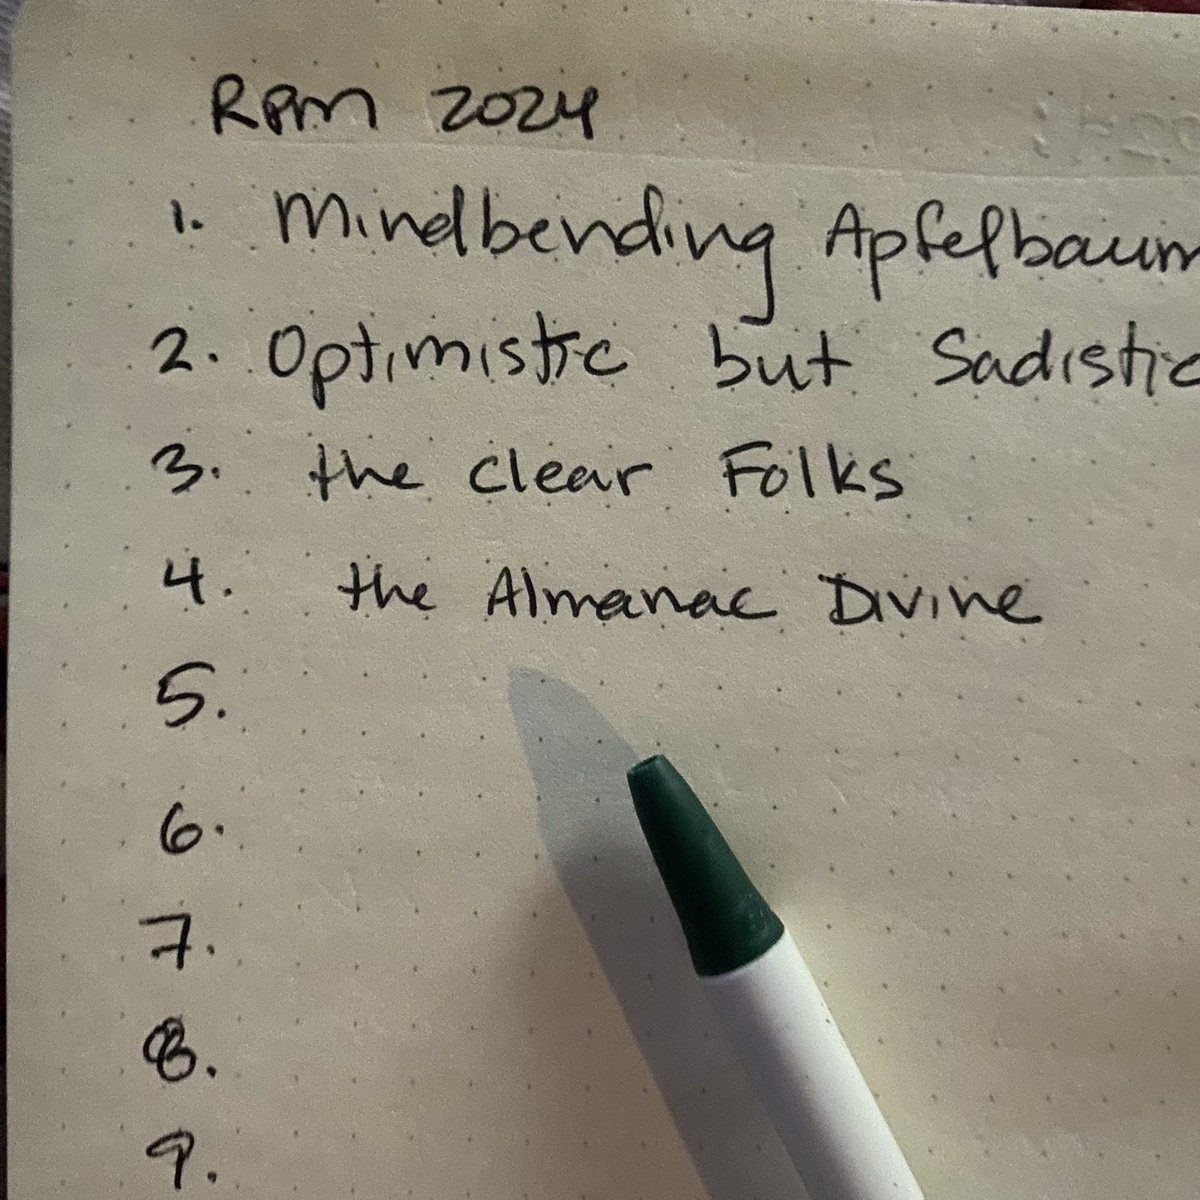 RPM 2024
1. Mindbending Apfelbaum
2. Optimistic but Sadistic
3. the Clear Folks
4. the Almanac Divine
5.
6.
7.
8.
9.